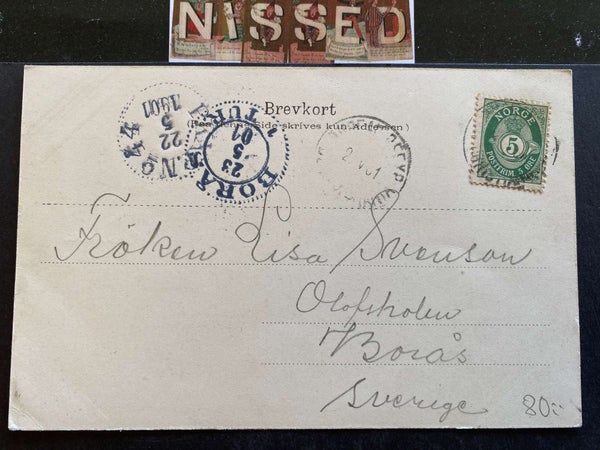 NISSED
Brevkort
side skrives kun Adressen)
NORGE
5
POSTFRIM. 5 ØRE
22
5
1901
BORÅS
23
5
01
TUR
Fröken Lisa Svenson
Olofsholm
Borås
Sverige
80:-